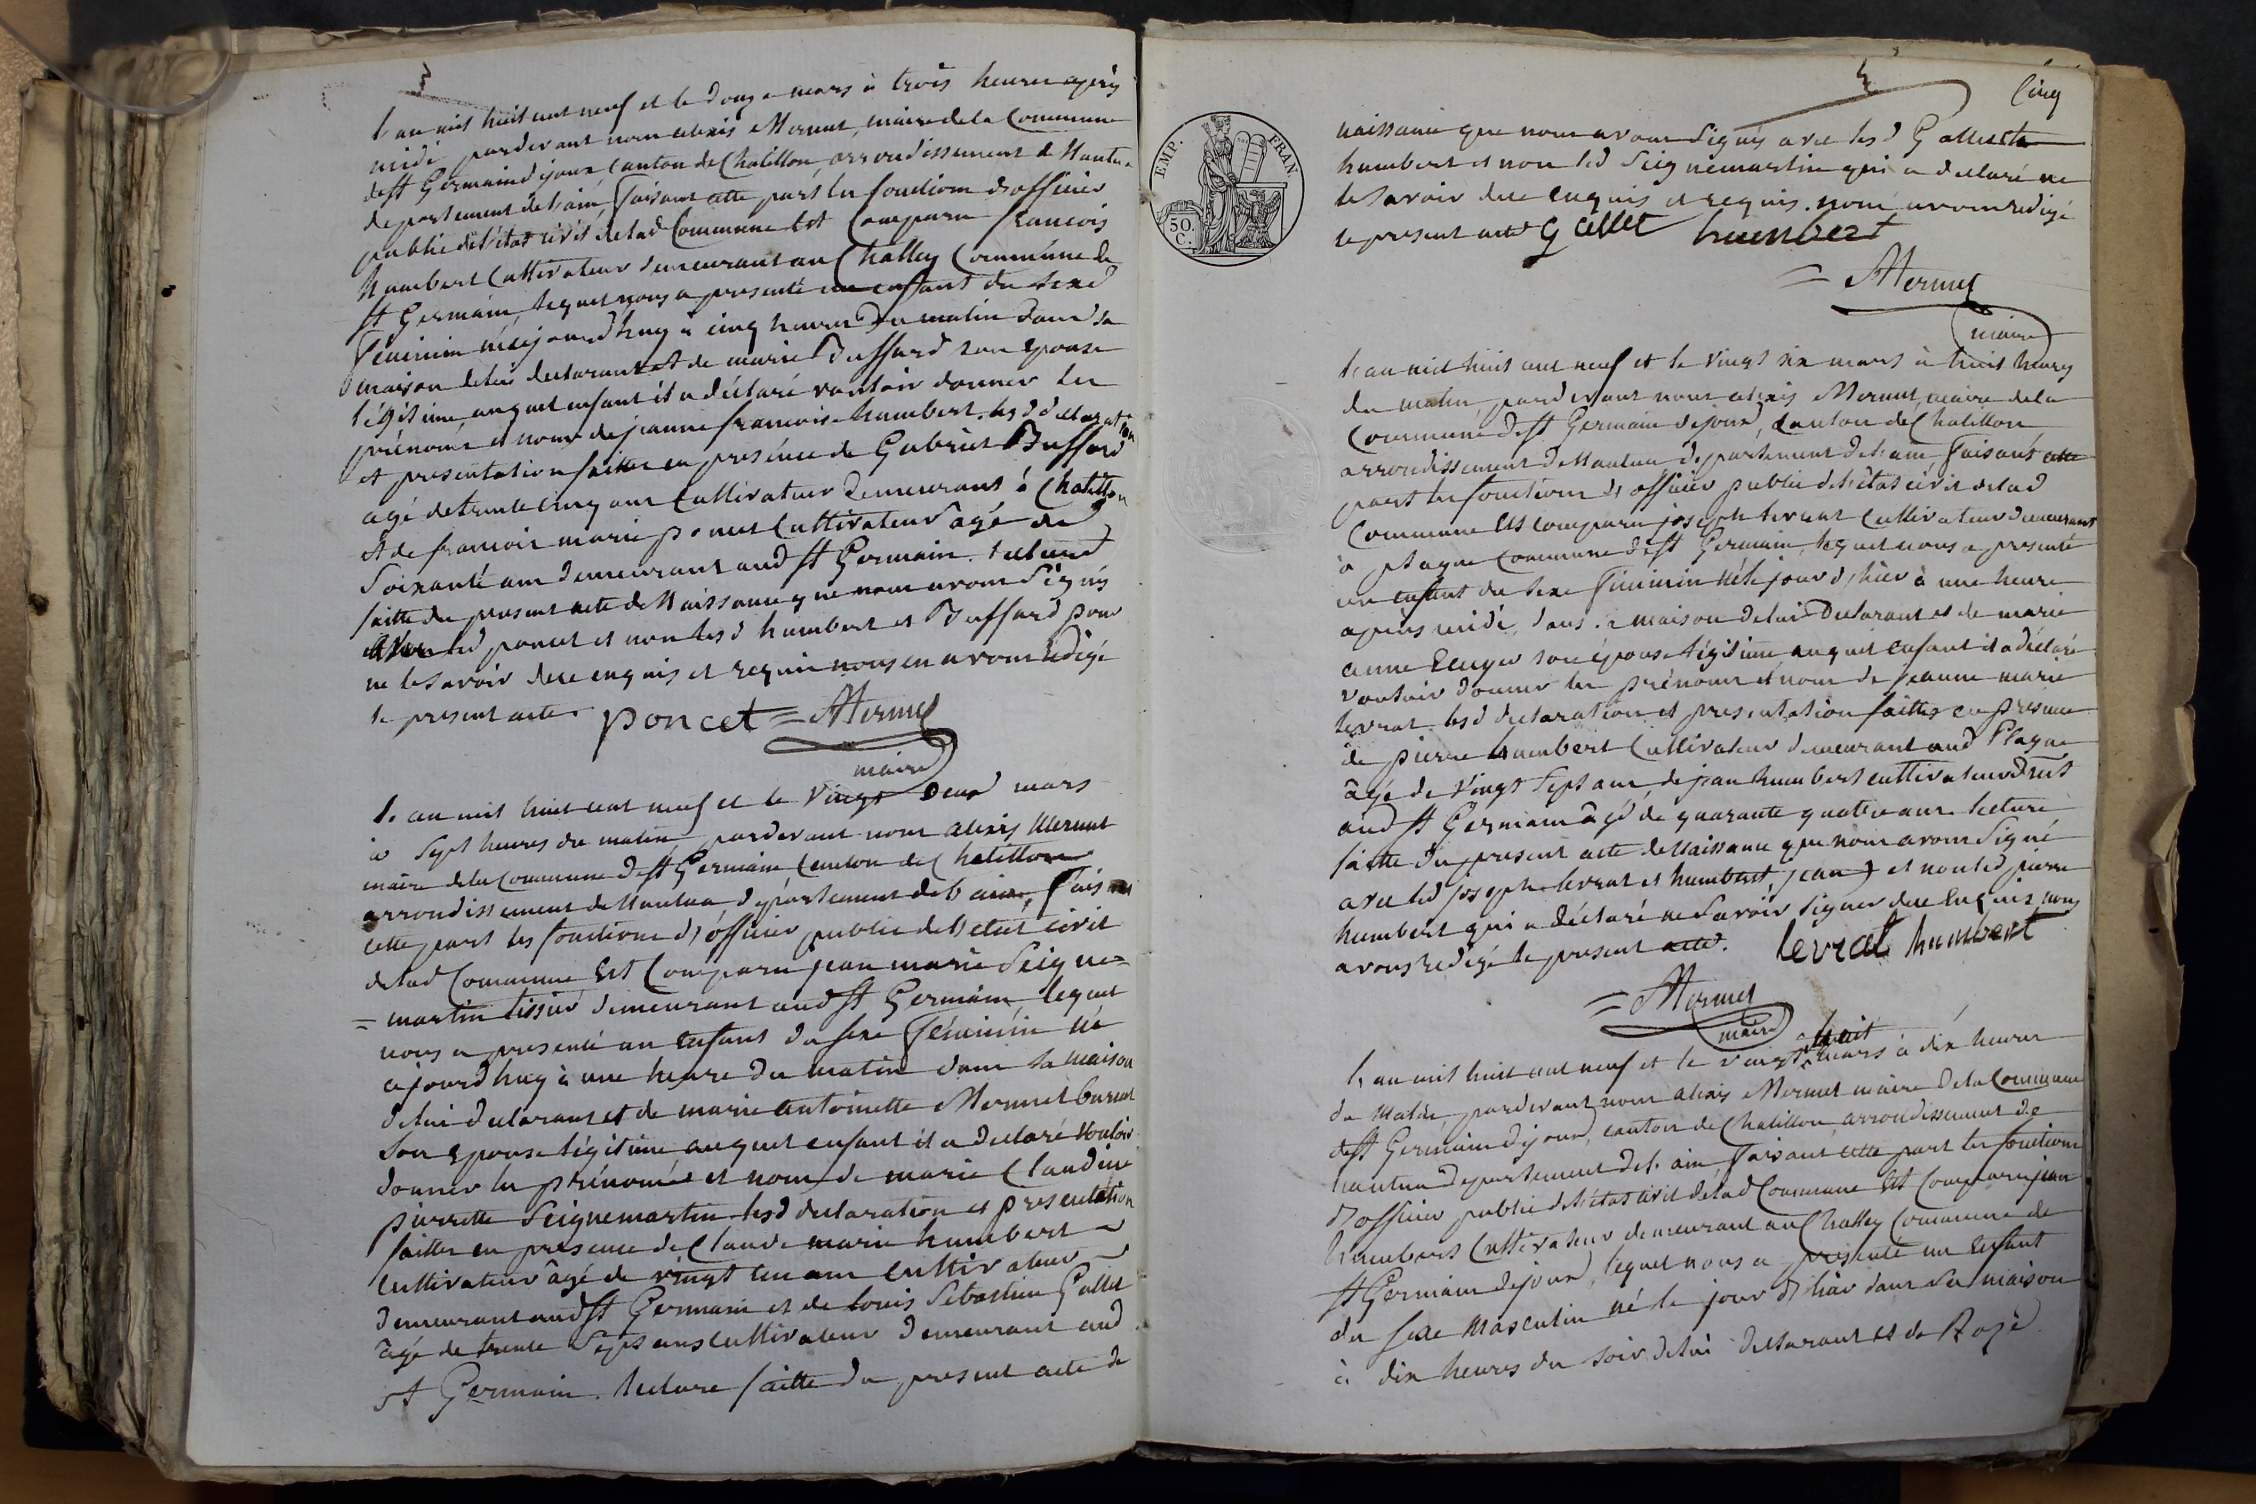 l'an mil huit cent neuf et le douze mars à trois heures après
midi pardevant nous alexis Mermet, maire de la Commune
de St Germain d ejoux Canton de Chatillon arrondissement de Nantua
departement de l'ain faisant cette part les fonctions d'officier
public de l'état civil de lad Commune Est Comparu francois
humbert Cultivateur demeurant au Challey Commune de
St Germain, lequel nous a presenté un enfant du sexe
feminin né cejourd huy à cinq heures du matin dans sa
maison de lui declarant et de marie Buffard son epouse
légitime auquel enfant il a déclaré vouloir donner les
prénoms et nom de jeanne francoise humbert. lesd declaration
et presentation faittes en presence de Gabriel Buffard
agé de trente cinq ans Cultivateur demeurant à Chatillon
et de francois marie poncet Cultivateur agé de
soixante ans demeurant aud St Germain. lecture
faitte du present acte de Naissance que nous avons Signés
avec led poncet et non lesd humbert et Buffard pour
ne le savoir de ce enquis et requis nous en avons Rédigé
le present acte. poncet = AMermet
maire
l'an mil huit cent neuf et le vingt deux mars
à sept heures du matin pardevant nous alexis Mermet
maire de la Commune de St Germain Canton de Chatillon
arrondissement de Nantua departement de l'ain, faisant
cette part les fonctions d'officier public de l'etat civil
de lad Commune Est Comparu jean marie Seigne=
=martin tissier demeurant aud St Germain, lequel
nous a presenté un Enfant du sexe féminin né
cejourdhuy à une heure du matin dans sa maison
de lui declarant et de marie antoinette Mermet burnet
son epouse légitime auquel enfant il a declaré vouloir
donner les prénoms et nom de marie Claudine
pierrette Seignemartin lesd declaration et presentation
faittes en presence de Claude marie humbert
Cultivateur agé de vingt un ans Cultivateur
demeurant aud St Germain et de louis Sebastien Gallet
agé de trente Sept ans cultivateur demeurant aud
St Germain. lecture faitte du present acte de
Cinq
naissance que nous avons Signés avec lesd Gallet et
humbert et non led Seignemartin qui a declaré ne
le savoir de ce enquis et requis. nous avons redigé
le present acte Gallet humbert
= AMermet
maire
l'an mil huit cent neuf et le vingt six mars à huit heures
du matin, pardevant nous alexis Mermet, maire de la
Commune de St Germain dejoux, Canton de Chatillon
arrondissement de Nantua departement de l'ain faisant cette
part les fonctions d'officier public de l'état civil de lad
Commune Est comparu joseph levrat Cultivateur demeurant
à plagne Commune de St Germain, lequel nous a presenté
un enfant du sexe féminin né le jour d'hier à une heure
après midi, dans sa maison de lui Declarant et de marie
anne son épouse légitime auquel enfant il a déclaré
vouloir donner les prénoms et nom de jeanne marie
levrat. lesd declaration et presentation faittes en presence
de pierre humbert Cultivateur demeurant aud Plagne
âgé de vingt sept ans, de jean humbert cultivateur
aud St Germain agé de quarante quatre ans lecture
faitte du present acte de Naissance que nous avons Signé
avec led joseph levrat et humbert, jean) et non led pierre
humbert qui a déclaré ne savoir signer de ce Enquis nous
avons redigé le present acte. levrat humbert
= AMermet
maire
huit
l'an mil huit cent neuf et le vingt mars à dix heures
du Matin, pardevant nous alexis Mermet maire de la Commune
de St Germain dejoux, canton de Chatillon arrondissement de
nantua departement de l'ain, faisant cette part les fonctions
d'officier public de l'état civil de lad Commune Est Comparu jean
humbert Cultivateur demeurant au Challey Commune de
St Germain dejoux, lequel nous a presenté un Enfant
du sexe Masculin né le jour d'hier dans sa maison
à dix heures du soir de lui declarant et de Rose